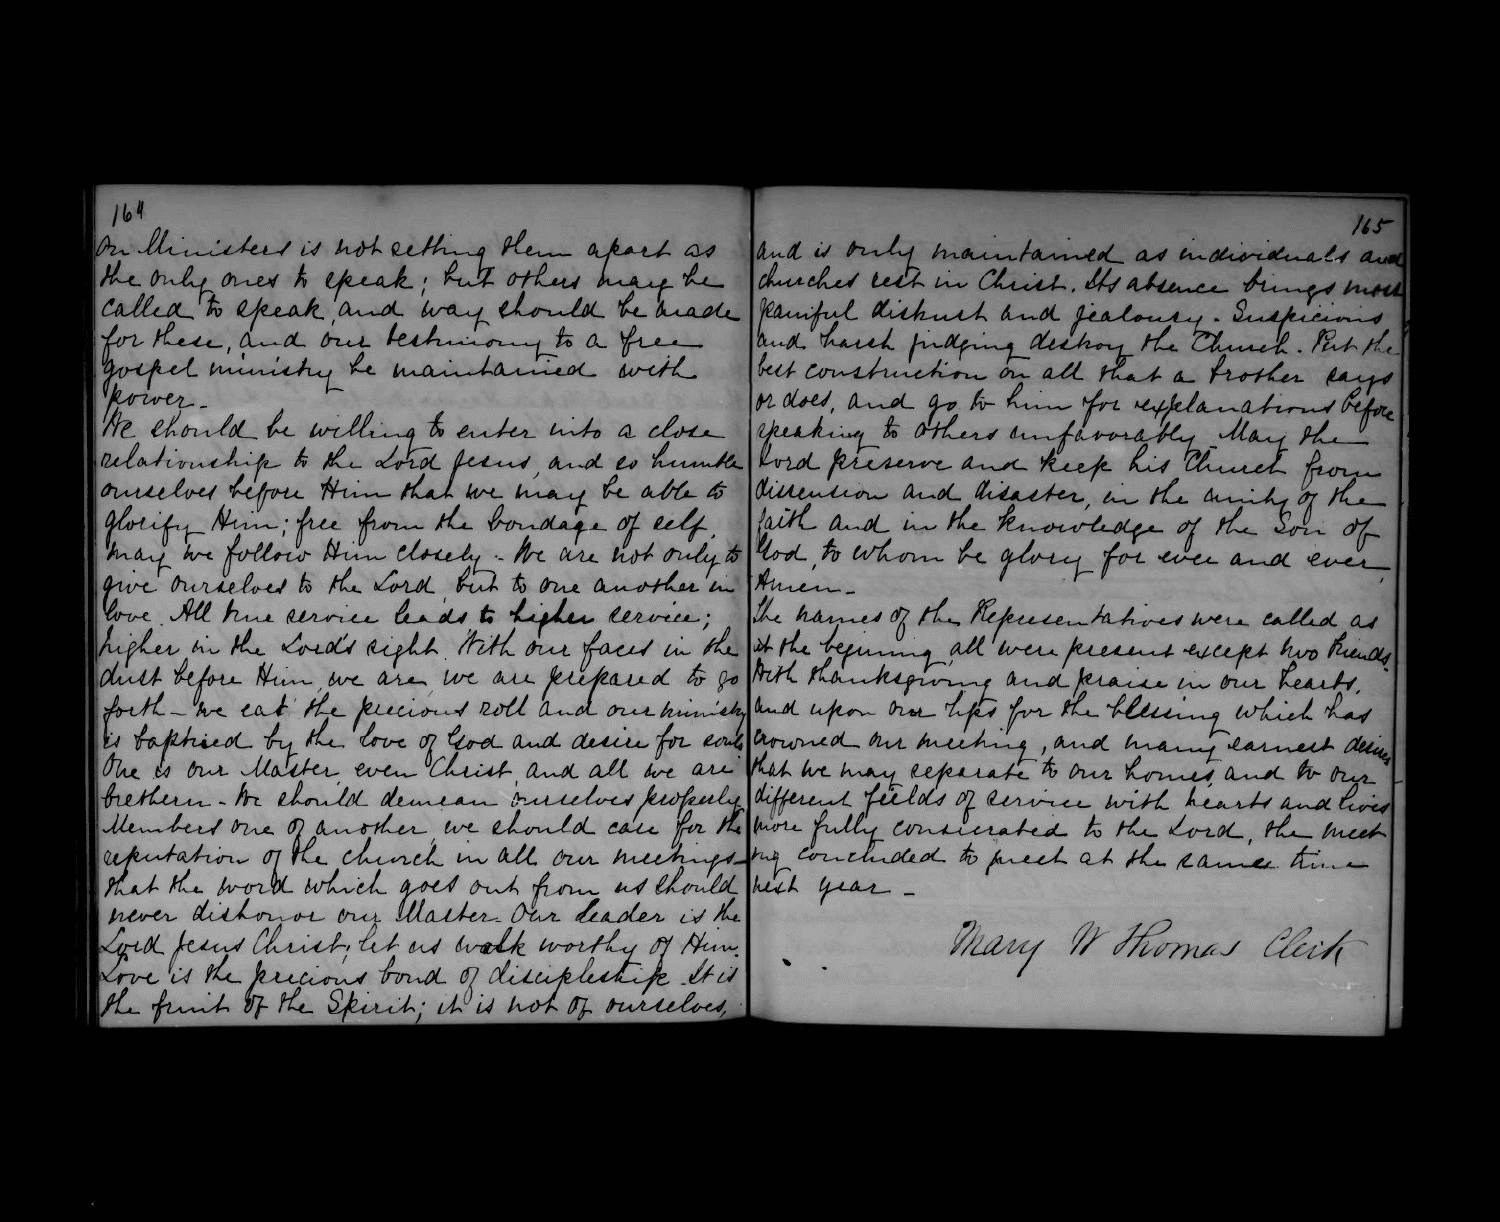 164
on Ministers is not setting them apart as
the only ones to speak; but others may be
called to speak, and way should be made
for these, and our testimony to a free
gospel ministry be maintained with
power-
We should be willing to enter into a close
relationship to the Lord Jesus, and so humble
ourselves before Him that we may be able to
glorify Him; free from the bondage of self,
may we follow Him closely - We are not only to
give ourselves to the Lord, but to one another in
love. All true service leads to higher service;
higher in the Lord's sight. With our faces in the
dust before Him, we are, we are prepared to go
forth - we eat the precious roll and our ministry
is baptised by the love of God and desire for souls
One is our Master, even Christ, and all we are
brethern - We should demean ourselves properly
Members one of another, we should care for the
reputation of the church, in all our meetings-
that the word which goes out from us should
never dishonor our Master- Our leader is the
Lord Jesus Christ; let us walk worthy of Him.
Love is the precious bond of discipleship. It is
the fruit of the Spirit; it is not of ourselves,
165
and is only maintained as individuals and
churches rest in Christ. Its absence brings most
painful distrust and jealousy - Suspicions
and harsh judging destroy the Church - Put the
best construction on all that a brother says
or does, and go to him for explanations before
speaking to others unfavorably - May the
Lord preserve and keep his Church from
dissension and disaster, in the unity of the
faith and in the knowledge of the Son of
God, to whom be glory for ever and ever,
Amen-
The names of the Representatives were called as
at the begining, all were present except two Friends.
With thanksgiving and praise in our hearts,
and upon our lips for the blessing which has
crowned our meeting, and many earnest desires
that we may separate to our homes, and to our
different fields of service with hearts and lives
more fully consecrated to the Lord, the meet
ing concluded to meet at the same time
next year -
Mary W Thomas Clerk